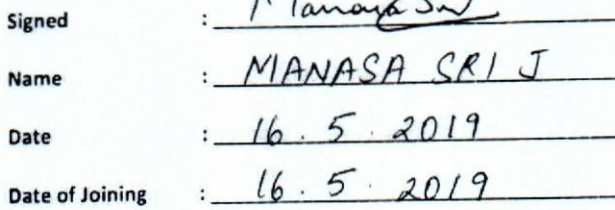 Signed : Manasa Sri
Name : MANASA SRI J
Date : 16 . 5 . 2019
Date of Joining : 16 . 5 . 2019